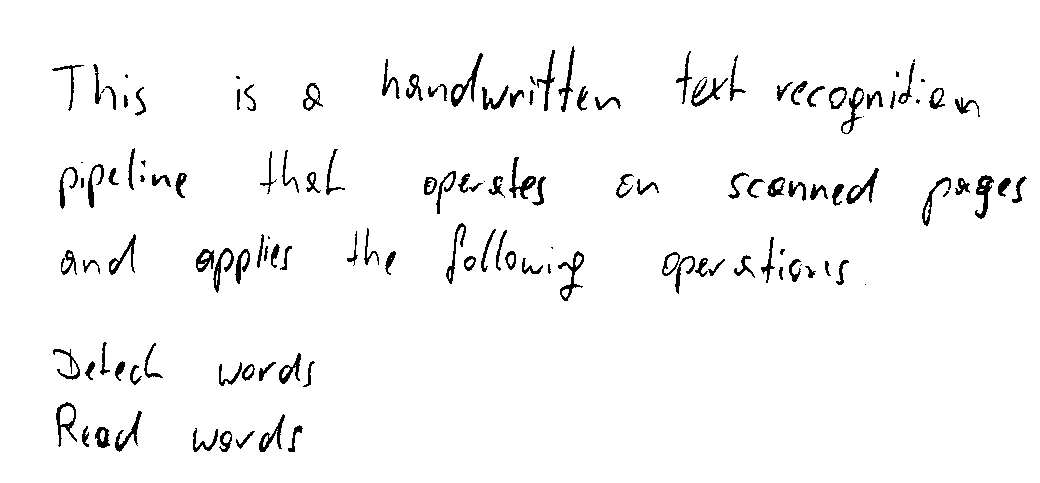 This is a handwritten text recognition
pipeline that operates on scanned pages
and applies the following operations
Detect words
Read words